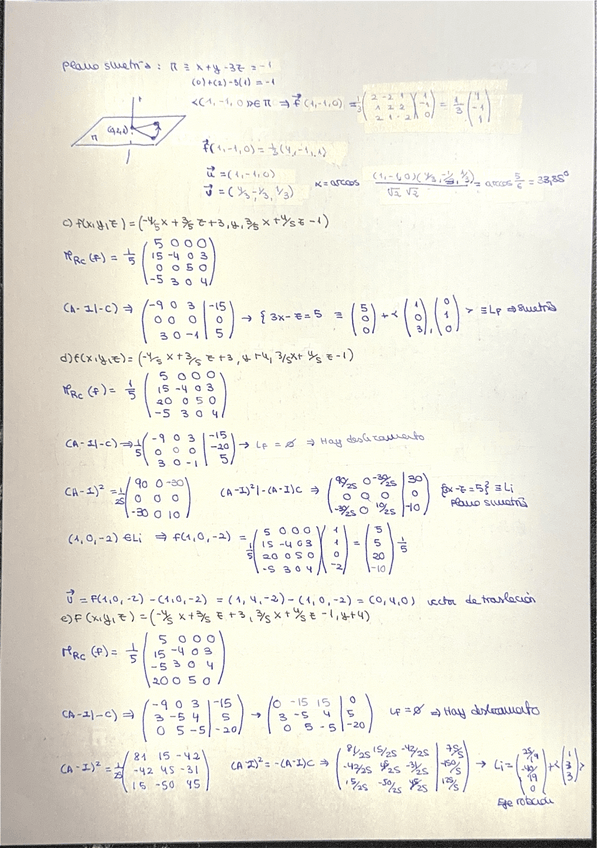 Plano simetría: π ≡ x+y-3z = -1
(0)+(2)-3(1) = -1
<(1,-1,0)>∈π ⇒ f⃗(1,-1,0) = 1/3 (2 -2 1 / 1 2 2 / 2 1 -2)(1 / -1 / 0) = 1/3 (4 / -1 / 1)
π
f⃗(1,-1,0) = 1/3(4,-1,1)
u⃗ = (1,-1,0)
v⃗ = (4/3,-1/3,1/3)
α = arcos (1,-1,0)(4/3,-1/3,1/3) / √2 √2 = arcos 5/6 = 33,55°
c) f(x,y,z) = (-4/5 x + 3/5 z + 3, y, 3/5 x + 4/5 z - 1)
M_Rc (f) = 1/5 (5 0 0 0 / 15 -4 0 3 / 0 0 5 0 / -5 3 0 4)
(A-I|-C) ⇒ (-9 0 3 | -15 / 0 0 0 | 0 / 3 0 -1 | 5) → { 3x-z=5 ≡ (5 / 0 / 0) + < (1 / 0 / 3), (0 / 1 / 0) > ≡ Lf ⇒ Simetría
d) f(x,y,z) = (-4/5 x + 3/5 z + 3, y+4, 3/5 x + 4/5 z - 1)
M_Rc (f) = 1/5 (5 0 0 0 / 15 -4 0 3 / 20 0 5 0 / -5 3 0 4)
(A-I|-C) ⇒ 1/5 (-9 0 3 | -15 / 0 0 0 | -20 / 3 0 -1 | 5) → Lf = ∅ ⇒ Hay deslizamiento
(A-I)² = 1/25 (90 0 -30 / 0 0 0 / -30 0 10) (A-I)²|-(A-I)C ⇒ (90/25 0 -30/25 | 30 / 0 0 0 | 0 / -30/25 0 10/25 | -10) {3x-z=5} ≡ Li
Plano simetría
(1,0,-2) ∈ Li ⇒ f(1,0,-2) = 1/5 (5 0 0 0 / 15 -4 0 3 / 20 0 5 0 / -5 3 0 4)(1 / 1 / 0 / -2) = (5 / 5 / 20 / -10) 1/5
v⃗ = f(1,0,-2) - (1,0,-2) = (1,4,-2) - (1,0,-2) = (0,4,0) vector de traslación
e) f(x,y,z) = (-4/5 x + 3/5 z + 3, 3/5 x + 4/5 z - 1, y+4)
M_Rc (f) = 1/5 (5 0 0 0 / 15 -4 0 3 / -5 3 0 4 / 20 0 5 0)
(A-I|-C) ⇒ (-9 0 3 | -15 / 3 -5 4 | 5 / 0 5 -5 | -20) → (0 -15 15 | 0 / 3 -5 4 | 5 / 0 5 -5 | -20) Lf = ∅ ⇒ Hay deslizamiento
(A-I)² = 1/25 (81 15 -42 / -42 45 -31 / 15 -50 45) (A-I)² = -(A-I)C ⇒ (81/25 15/25 -42/25 | 75/5 / -42/25 45/25 -31/25 | -150/5 / 15/25 -50/25 45/25 | 125/5) → Li = + < (1 / 3 / 3) >
Eje rotación